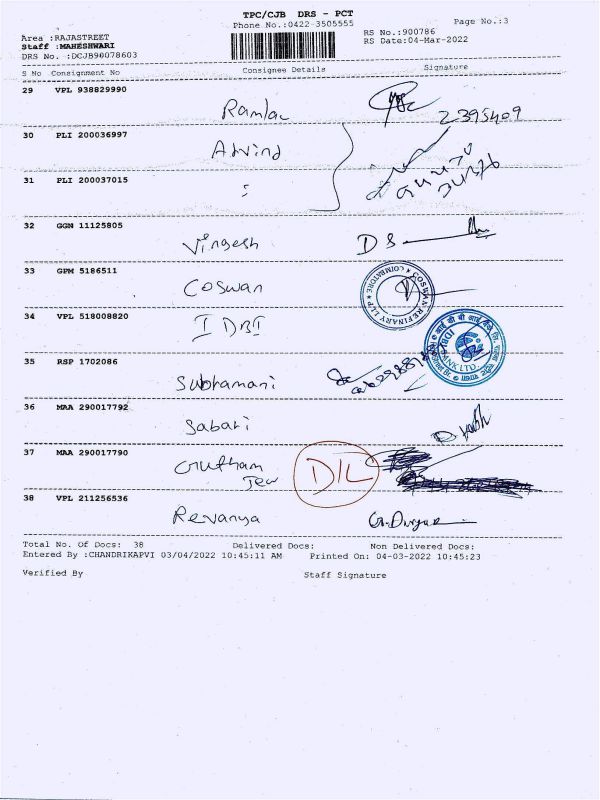 TPC/CJB DRS - PCT
Phone No.:0422-3505555
Page No.:3
RS No.:900786
RS Date:04-Mar-2022
Area :RAJASTREET
Staff :MAHESHWARI
DRS No. :DCJB90078603
S No Consignment No Consignee Details Signature
29 VPL 938829990
Ramlal
2395409
30 PLI 200036997
Arvind
31 PLI 200037015
32 GGN 11125805
Vingesh
D S
33 GPM 5186511
Coswan
COSWAN REFINARY LLP ★ COIMBATORE ★
34 VPL 518008820
IDBI
IDBI
BANK LTD.
35 RSP 1702086
Subhamani
36 MAA 290017792
Sabari
37 MAA 290017790
Jew
D/L
38 VPL 211256536
Revanya
Total No. Of Docs: 38 Delivered Docs: Non Delivered Docs:
Entered By :CHANDRIKAPVI 03/04/2022 10:45:11 AM Printed On: 04-03-2022 10:45:23
Verified By Staff Signature